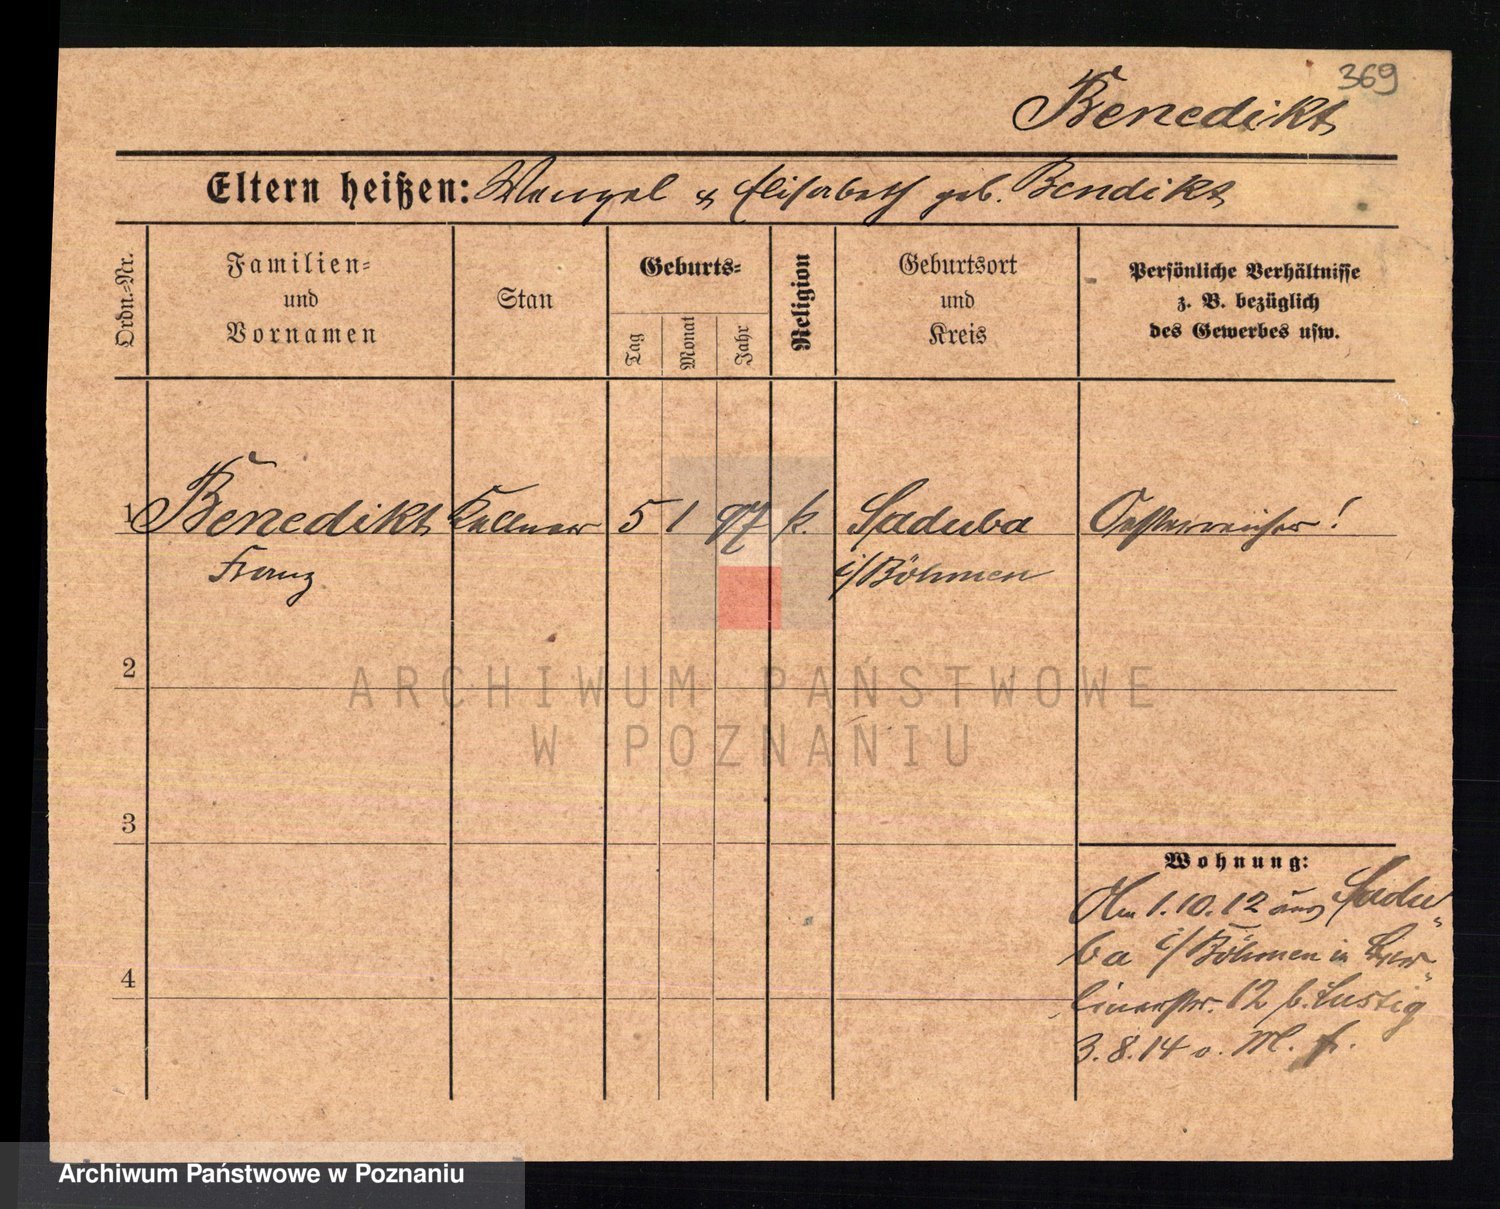 369
Benedikt
Eltern heißen: Wenzel & Elisabeth geb. Bendikt
Ordn.-Nr.
Familien-
und
Vornamen
Stan
Geburts-
Tag
Monat
Jahr
Religion
Geburtsort
und
Kreis
Persönliche Verhältnisse
z. B. bezüglich
des Gewerbes usw.
1 Benedikt Kellner 5 1 97 k. Saduba Oesterreicher!
Franz i/Böhmen
2
ARCHIWUM PAŃSTWOWE
W POZNANIU
3
Wohnung:
Am 1.10.12 aus Sadu„
ba i/Böhmen in Ber„
linerstr. 12 b. Lustig
4
3.8.14 o. M. f.
Archiwum Państwowe w Poznaniu